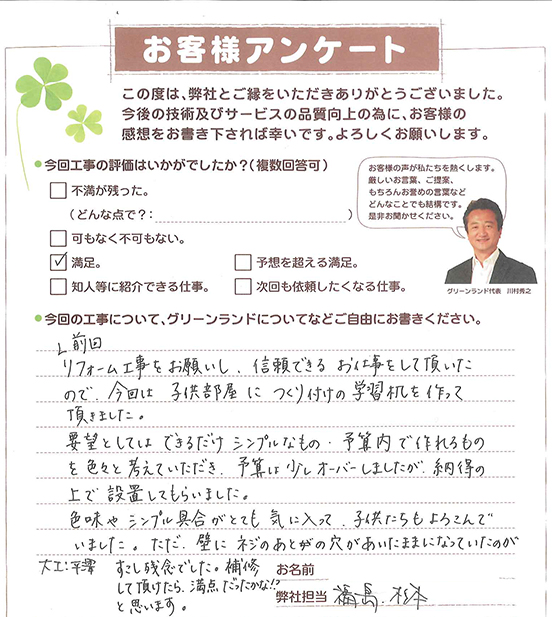 お客様アンケート
この度は、弊社とご縁をいただきありがとうございました。
今後の技術及びサービスの品質向上の為に、お客様の
感想をお書き下されば幸いです。よろしくお願いします。
●今回工事の評価はいかがでしたか?(複数回答可)
□不満が残った。
(どんな点で?: )
□可もなく不可もない。
☑満足。 □予想を超える満足。
□知人等に紹介できる仕事。 □次回も依頼したくなる仕事。
お客様の声が私たちを熱くします。
厳しいお言葉、ご提案、
もちろんお誉めの言葉など
どんなことでも結構です。
是非お聞かせください。
グリーンランド代表 川村秀之
●今回の工事について、グリーンランドについてなどご自由にお書きください。
前回
リフォーム工事をお願いし、信頼できる お仕事をして頂いた
ので、今回は 子供部屋に つくり付けの学習机を作って
頂きました。
要望としては できるだけ シンプルなもの・予算内で作れるもの
を色々と考えていただき、予算は少しオーバーしましたが、納得の
上で設置してもらいました。
色味や シンプル具合がとても 気に入って、子供たちもよろこんで
いました。ただ、壁に ネジのあとがの穴があいたままになっていたのが
すこし残念でした。補修
して頂けたら、満点だったかな!?
と思います。
大工:平澤
お名前
弊社担当 福島、杉本